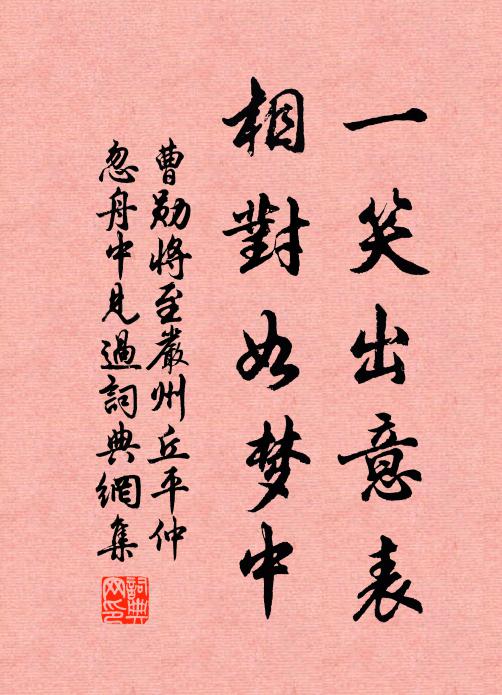 一笑出意表
相對如梦中
曹勋將至嚴州丘平仲
忽舟中見過詞典網集
詞典网印